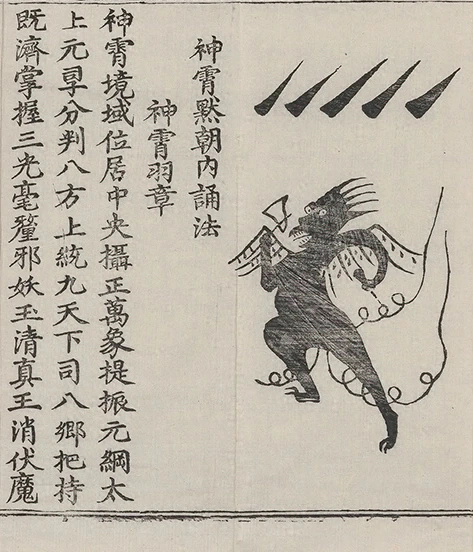 神霄默朝內誦法
神霄羽章
神霄境域位居中央攝正萬象提振元綱太
上元罡分判八方上統九天下司八鄉把持
既濟掌握三光毫釐邪妖玉清真王消伏魔